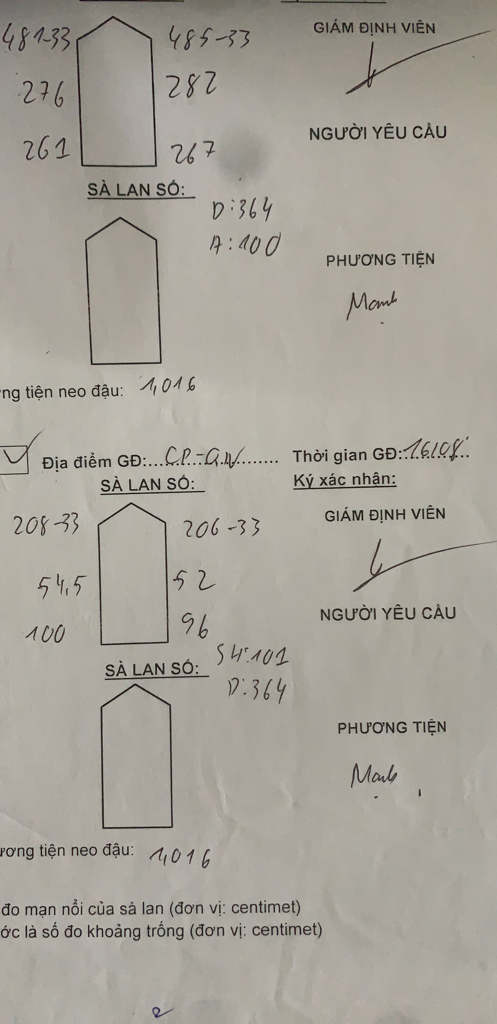 481-33 485-33 GIÁM ĐỊNH VIÊN
276 282
261 267 NGƯỜI YÊU CẦU
SÀ LAN SỐ:
D:364
A:100 PHƯƠNG TIỆN
Mạnh
ng tiện neo đậu: 1,016
Địa điểm GĐ:....C.P.-G.N........ Thời gian GĐ:.16/08..
SÀ LAN SỐ: Ký xác nhận:
208-33 206-33 GIÁM ĐỊNH VIÊN
54,5 52
100 96 NGƯỜI YÊU CẦU
S4:101
SÀ LAN SỐ: D:364
PHƯƠNG TIỆN
Mạnh
ương tiện neo đậu: 1,016
đo mạn nổi của sà lan (đơn vị: centimet)
ớc là số đo khoảng trống (đơn vị: centimet)